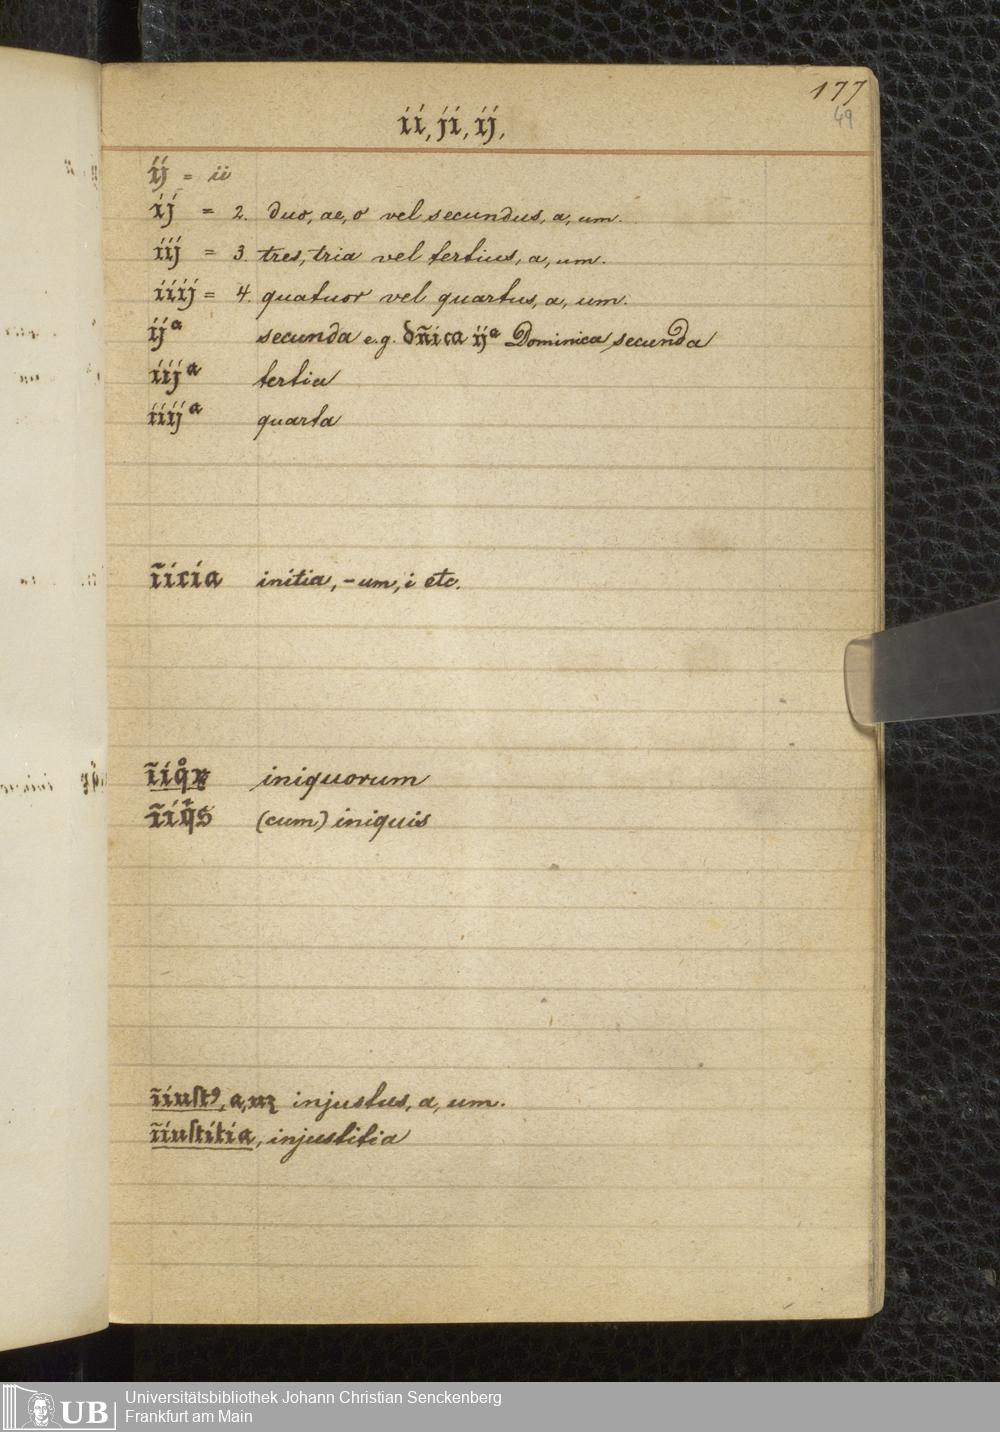 177
49
ii, ji, ij,
ij = ii
ij = 2. duo, ae, o vel secundus, a, um.
iij = 3. tres, tria vel tertius, a, um.
iiij = 4. quatuor vel quartus, a, um.
ijᵃ secunda e.g. dñica ijᵃ Dominica secunda
iijᵃ tertia
iiijᵃ quarta
ĩicia initia, -um, i etc.
ĩiq̊ꝝ iniquorum
ĩiq̃s (cum) iniquis
ĩiuſtꝰ, a, uꝫ injustus, a, um.
ĩiuſtitia, injustitia
UB Universitätsbibliothek Johann Christian Senckenberg
Frankfurt am Main